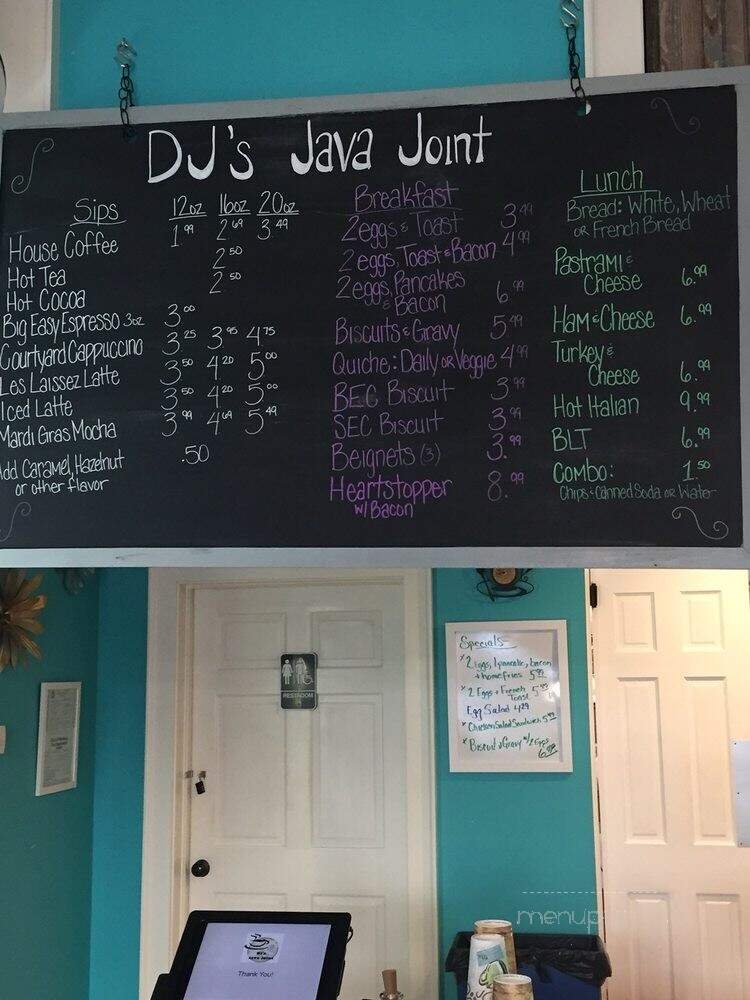 DJ's Java Joint
Sips 12oz 16oz 20oz
House Coffee 1.99 2.69 3.49
Hot Tea 2.50
Hot Cocoa 2.50
Big Easy Espresso 3oz 3.00
Courtyard Cappuccino 3.25 3.95 4.75
Les Laissez Latte 3.50 4.20 5.00
Iced Latte 3.50 4.20 5.00
Mardi Gras Mocha 3.99 4.69 5.49
Add Caramel, Hazelnut .50
or other flavor
Breakfast
2 eggs & Toast 3.49
2 eggs, Toast & Bacon 4.99
2 eggs, Pancakes
& Bacon 6.99
Biscuits & Gravy 5.49
Quiche: Daily or Veggie 4.99
BEC Biscuit 3.99
SEC Biscuit 3.99
Beignets (3) 3.99
Heartstopper 8.99
w/ Bacon
Lunch
Bread: White, Wheat
or French Bread
Pastrami &
Cheese 6.99
Ham & Cheese 6.99
Turkey &
Cheese 6.99
Hot Italian 9.99
BLT 6.99
Combo: 1.50
Chips & Canned Soda or Water
RESTROOM
Specials
* 2 Eggs, 1 pancake, bacon
+ homefries 5.99
* 2 Eggs + French
Toast 5.95
Egg Salad 4.29
* Chicken Salad Sandwich 5.99
* Biscuit & Gravy w/ 2 Eggs
6.99
DJ's
Java Joint
Thank You!
menup